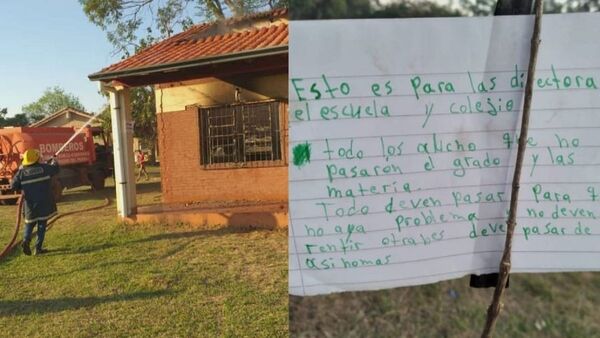 BOMBEROS
Esto es para las directora
el escuela y colejio
todo los alucho que no
pasaron el grado y las
materia
Todo deven pasar Para q
no aya problema no deven
rentir otrabes deven pasar de
asi nomas